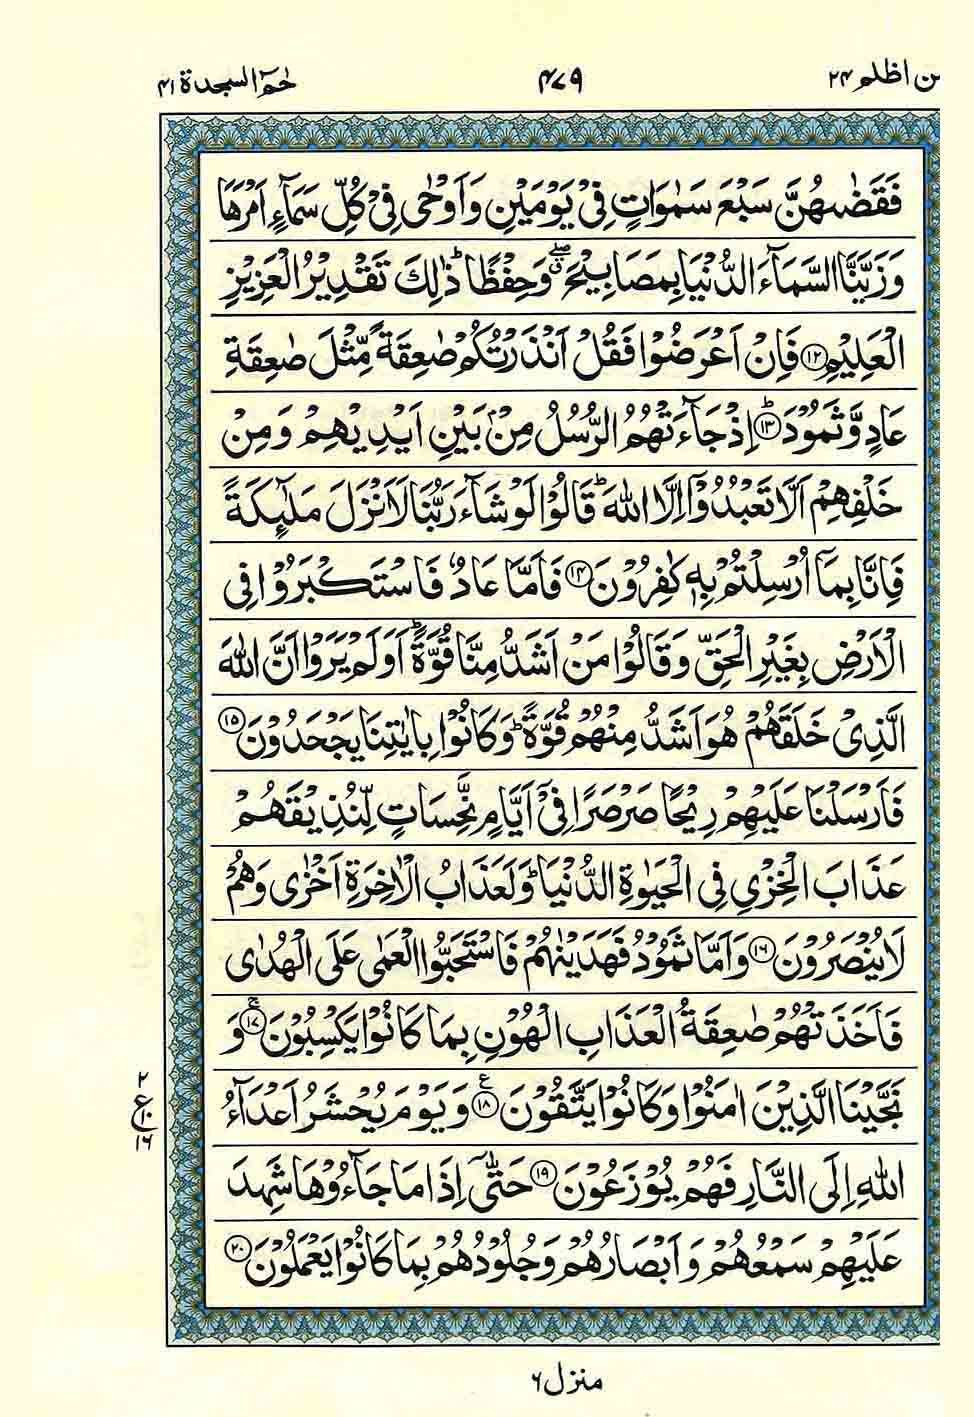 من اظلم ۲۴
۴۷۹
حٰمٓ السجدة ۴۱
فَقَضٰىهُنَّ سَبْعَ سَمٰوَاتٍ فِيْ يَوْمَيْنِ وَاَوْحٰى فِيْ كُلِّ سَمَآءٍ اَمْرَهَا
وَزَيَّنَّا السَّمَآءَ الدُّنْيَا بِمَصَابِيْحَ ۖ وَحِفْظًا ؕ ذٰلِكَ تَقْدِيْرُ الْعَزِيْزِ
الْعَلِيْمِ ﴿۱۲﴾ فَاِنْ اَعْرَضُوْا فَقُلْ اَنْذَرْتُكُمْ صٰعِقَةً مِّثْلَ صٰعِقَةِ
عَادٍ وَّثَمُوْدَ ؕ﴿۱۳﴾ اِذْ جَآءَتْهُمُ الرُّسُلُ مِنْۢ بَيْنِ اَيْدِيْهِمْ وَمِنْ
خَلْفِهِمْ اَلَّا تَعْبُدُوْۤا اِلَّا اللّٰهَ ؕ قَالُوْا لَوْ شَآءَ رَبُّنَا لَاَنْزَلَ مَلٰٓئِكَةً
فَاِنَّا بِمَاۤ اُرْسِلْتُمْ بِهٖ كٰفِرُوْنَ ﴿۱۴﴾ فَاَمَّا عَادٌ فَاسْتَكْبَرُوْا فِي
الْاَرْضِ بِغَيْرِ الْحَقِّ وَقَالُوْا مَنْ اَشَدُّ مِنَّا قُوَّةً ؕ اَوَلَمْ يَرَوْا اَنَّ اللّٰهَ
الَّذِيْ خَلَقَهُمْ هُوَ اَشَدُّ مِنْهُمْ قُوَّةً ؕ وَكَانُوْا بِاٰيٰتِنَا يَجْحَدُوْنَ ﴿۱۵﴾
فَاَرْسَلْنَا عَلَيْهِمْ رِيْحًا صَرْصَرًا فِيْۤ اَيَّامٍ نَّحِسَاتٍ لِّنُذِيْقَهُمْ
عَذَابَ الْخِزْيِ فِي الْحَيٰوةِ الدُّنْيَا ؕ وَلَعَذَابُ الْاٰخِرَةِ اَخْزٰى وَهُمْ
لَا يُنْصَرُوْنَ ﴿۱۶﴾ وَاَمَّا ثَمُوْدُ فَهَدَيْنٰهُمْ فَاسْتَحَبُّوا الْعَمٰى عَلَى الْهُدٰى
فَاَخَذَتْهُمْ صٰعِقَةُ الْعَذَابِ الْهُوْنِ بِمَا كَانُوْا يَكْسِبُوْنَ ۚ﴿۱۷﴾ وَ
نَجَّيْنَا الَّذِيْنَ اٰمَنُوْا وَكَانُوْا يَتَّقُوْنَ ﴿۱۸﴾ ع وَيَوْمَ يُحْشَرُ اَعْدَآءُ
اللّٰهِ اِلَى النَّارِ فَهُمْ يُوْزَعُوْنَ ﴿۱۹﴾ حَتّٰۤى اِذَا مَا جَآءُوْهَا شَهِدَ
عَلَيْهِمْ سَمْعُهُمْ وَاَبْصَارُهُمْ وَجُلُوْدُهُمْ بِمَا كَانُوْا يَعْمَلُوْنَ ﴿۲۰﴾
۲
ع۱۰
۱۶
منزل ۶